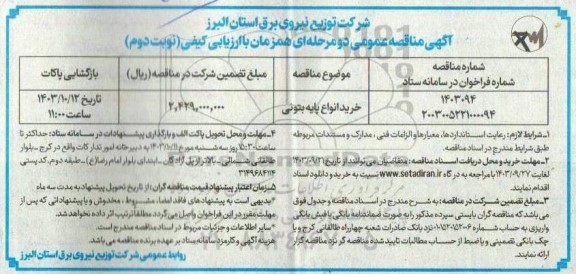 شرکت توزیع نیروی برق استان البرز
آگهی مناقصه عمومی دو مرحله‌ای همزمان با ارزیابی کیفی (نوبت دوم)
شماره مناقصه
شماره فراخوان در سامانه ستاد
موضوع مناقصه
مبلغ تضمین شرکت در مناقصه (ریال)
بازگشایی پاکات
۱۴۰۳۰۹۴
۲۰۰۳۰۰۵۲۲۱۰۰۰۰۹۴
خرید انواع پایه بتونی
۲,۴۲۹,۰۰۰,۰۰۰
تاریخ ۱۴۰۳/۱۰/۱۲
ساعت ۱۱:۰۰
۱- شرایط لازم: رعایت استانداردها، معیارها و الزامات فنی، مدارک و مستندات مربوطه
طبق شرایط مندرج در اسناد مناقصه.
۲- مهلت خرید و محل دریافت اسناد مناقصه: متقاضیان می‌توانند از تاریخ
لغایت ۱۴۰۳/۰۹/۲۷ با مراجعه به درگاه www.setadiran.ir نسبت به خرید و دانلود اسناد
اقدام نمایند.
۳- مبلغ تضمین شرکت در مناقصه: به شرح مندرج در اسناد مناقصه و جدول فوق
می باشد که مناقصه گران بایستی سپرده مذکور را به صورت ضمانتنامه بانکی یا فیش بانکی
واریزی به حساب شماره نزد بانک صادرات شعبه چهارراه طالقانی کرج و یا
چک بانکی تضمینی و یا ضبط از حساب مطالبات تایید شده مناقصه گر نزد مناقصه گزار
ارائه نمایند.
۴- مهلت و محل تحویل پاکت الف و بارگذاری پیشنهادات در سامانه ستاد: حداکثر تا
ساعت ۱۵:۳۰ روز سه شنبه مورخ ۱۴۰۳/۱۰/۱۱ به دبیرخانه امور تدارکات واقع در کرج - بلوار
ابتدای بلوار امام رضا(ع) - طبقه دوم، کد پستی
۳۱۴۹۶۸۴۱۱۴
۵- زمان اعتبار پیشنهاد قیمت مناقصه گران: از تاریخ تحویل پیشنهاد به مدت سه ماه
*بدیهی است به پیشنهاد های فاقد امضاء، مشروط، مخدوش و یا پیشنهاداتی که پس از
مهلت مقرر در این فراخوان واصل می گردد مطلقا ترتیب اثر داده نخواهد شد.
*سایر اطلاعات و جزئیات مربوط در اسناد مناقصه مندرج است.
هزینه آگهی و کارمزد سامانه ستاد بر عهده برنده مناقصه می باشد.
روابط عمومی شرکت توزیع نیروی برق استان البرز